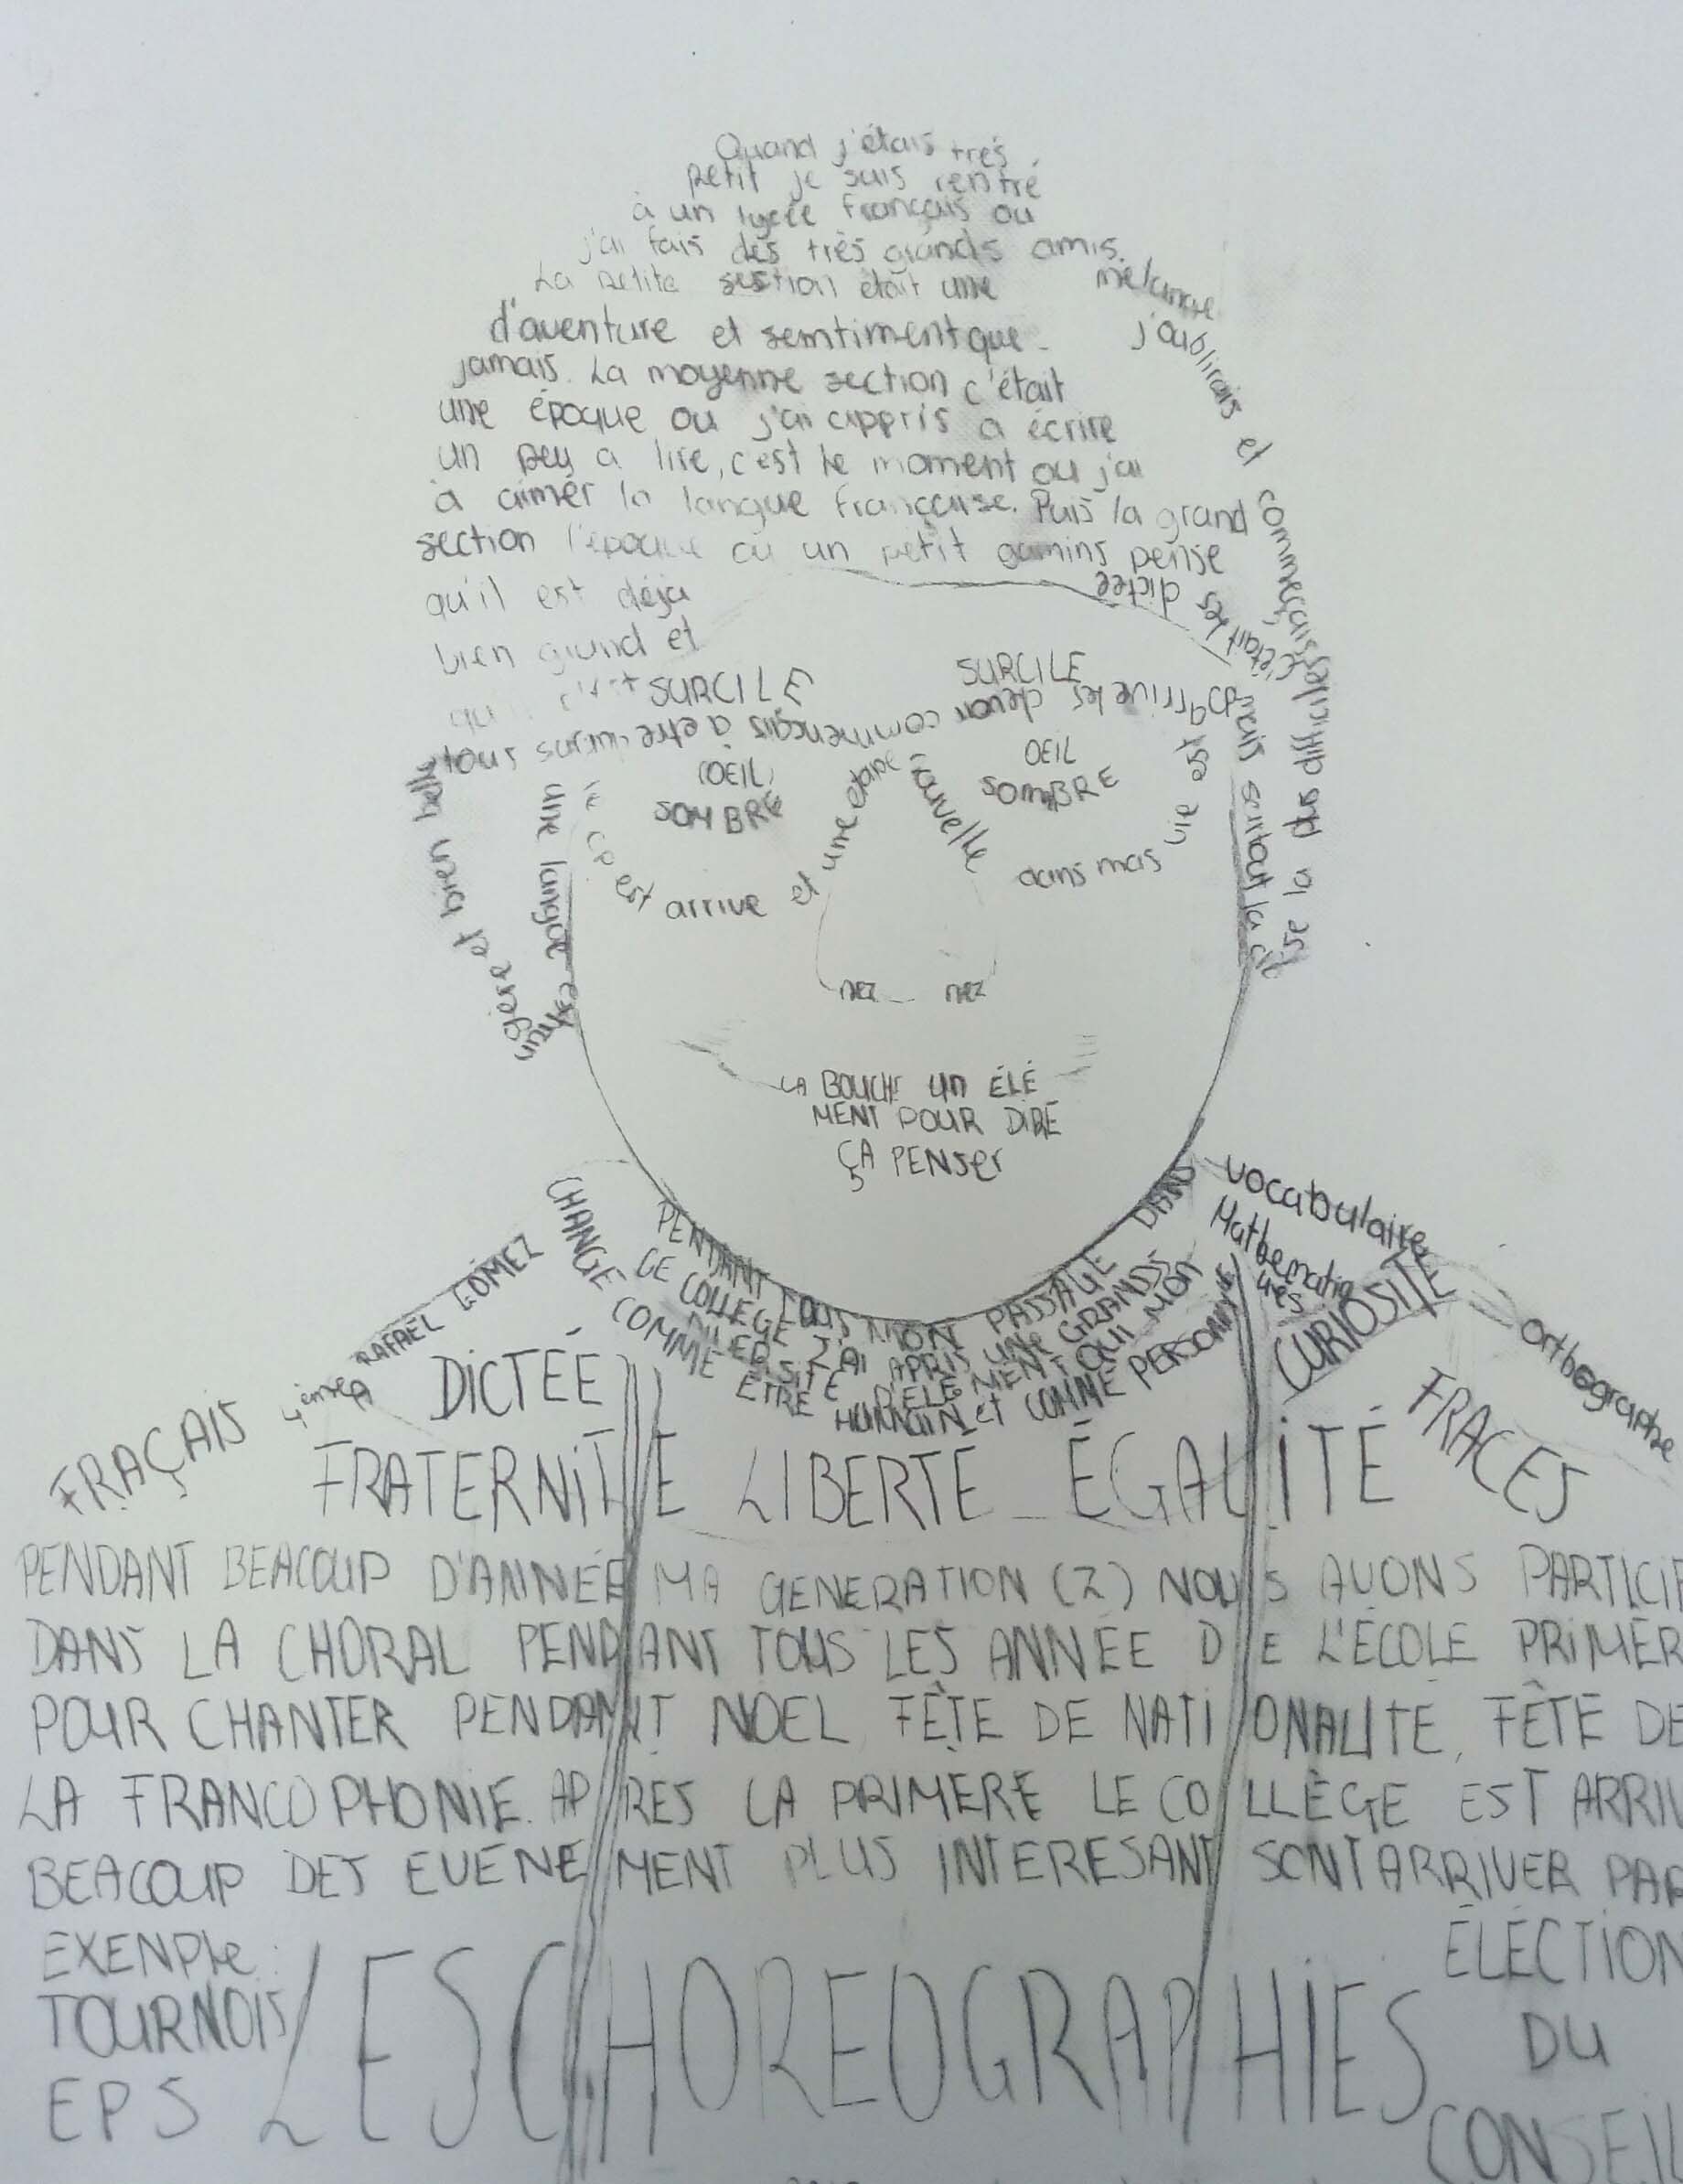 Quand j'étais très
petit je suis rentré
à un lycée français ou
j'ai fais des très grands amis.
La petite section était une mélange
d'aventure et sentiment que j'oublirais et
jamais. La moyenne section c'était
une époque ou j'ai appris a écrire
un peu a lire, c'est le moment ou j'ai commençais
à aimer la langue française. Puis la grand
section l'époque ou un petit gamins pense
qu'il est déjà
bien grand et
qu'
c'était les dictée
mais surtout la
se la plus difficiles
SURCILE
SURCILE
tous
commençais a etre
arrive les
(OEIL)
SOMBRE
OEIL
SOMBRE
ça est arrive et une etape nouvelle dans mas vie est
une langue
et bien belle
nez nez
LA BOUCHE un ÉLÉ
MENT POUR DIRE
ÇA PENSer
PENDANT TOUS MON PASSAGE DANS
CE COLLEGE J'AI APRIS UNE GRANDE
DIVERSITÉ D'ELEMENT QUI MON
CHANGE COMME ÊTRE HUMAIN et COMME PERSONNE
vocabulaire
Mathematiq
ues
CURIOSITÉ
orthographe
FRACES
FRAÇAIS
4èmeA RAFAEL GÓMEZ
DICTÉE
FRATERNITÉ LIBERTÉ ÉGALITÉ
PENDANT BEACOUP D'ANNÉE MA GENERATION (Z) NOUS AVONS PARTICIP
DANS LA CHORAL PENDANT TOUS LES ANNÉE DE L'ÉCOLE PRIMER
POUR CHANTER PENDANT NOEL, FÊTE DE NATIONALITÉ, FÊTE DE
LA FRANCOPHONIE. APRES LA PRIMERE LE COLLÈGE EST ARRIV
BEACOUP DES EVENEMENT PLUS INTERESANT SONT ARRIVER PAR
EXENPle:
TOURNOIS
EPS
LES CHOREOGRAPHIES
ÉLÉCTION
DU
CONSEIL